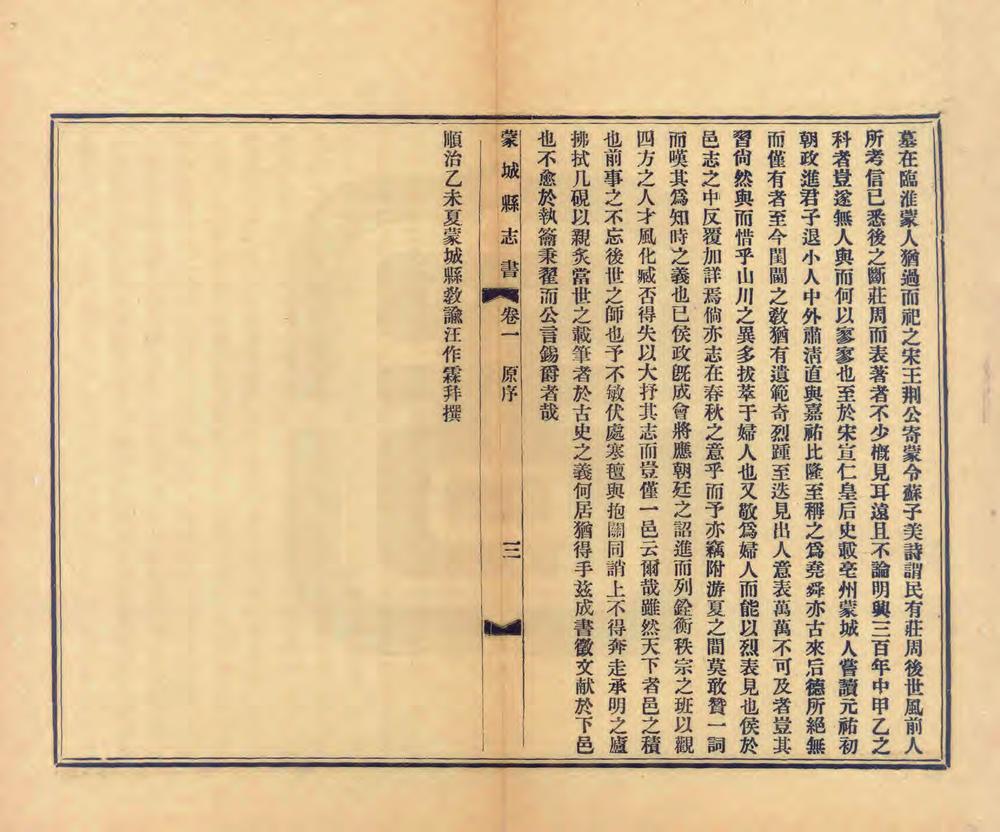 墓在臨淮蒙人猶過而祀之宋王荆公寄蒙令蘇子美詩謂民有莊周後世風前人
所考信已悉後之斷莊周而表著者不少槪見耳遠且不論明興三百年中甲乙之
科者豈遂無人與而何以寥寥也至於宋宣仁皇后史載亳州蒙城人嘗讀元祐初
朝政進君子退小人中外肅淸直與嘉祐比隆至稱之爲堯舜亦古來后德所絕無
而僅有者至今閨闈之敎猶有遺範奇烈踵至迭見出人意表萬萬不可及者豈其
習尙然與而惜乎山川之異多拔萃于婦人也又敬爲婦人而能以烈表見也侯於
邑志之中反覆加詳焉倘亦志在春秋之意乎而予亦竊附游夏之間莫敢贊一詞
而嘆其爲知時之義也已侯政旣成會將應朝廷之詔進而列銓衡秩宗之班以觀
四方之人才風化臧否得失以大抒其志而豈僅一邑云爾哉雖然天下者邑之積
也前事之不忘後世之師也予不敏伏處寒氊與抱關同誚上不得奔走承明之廬
拂拭几硯以親炙當世之載筆者於古史之義何居猶得手玆成書徵文献於下邑
也不愈於執籥秉翟而公言錫爵者哉
蒙城縣志書 卷一 原序 三
順治乙未夏蒙城縣敎諭汪作霖拜撰